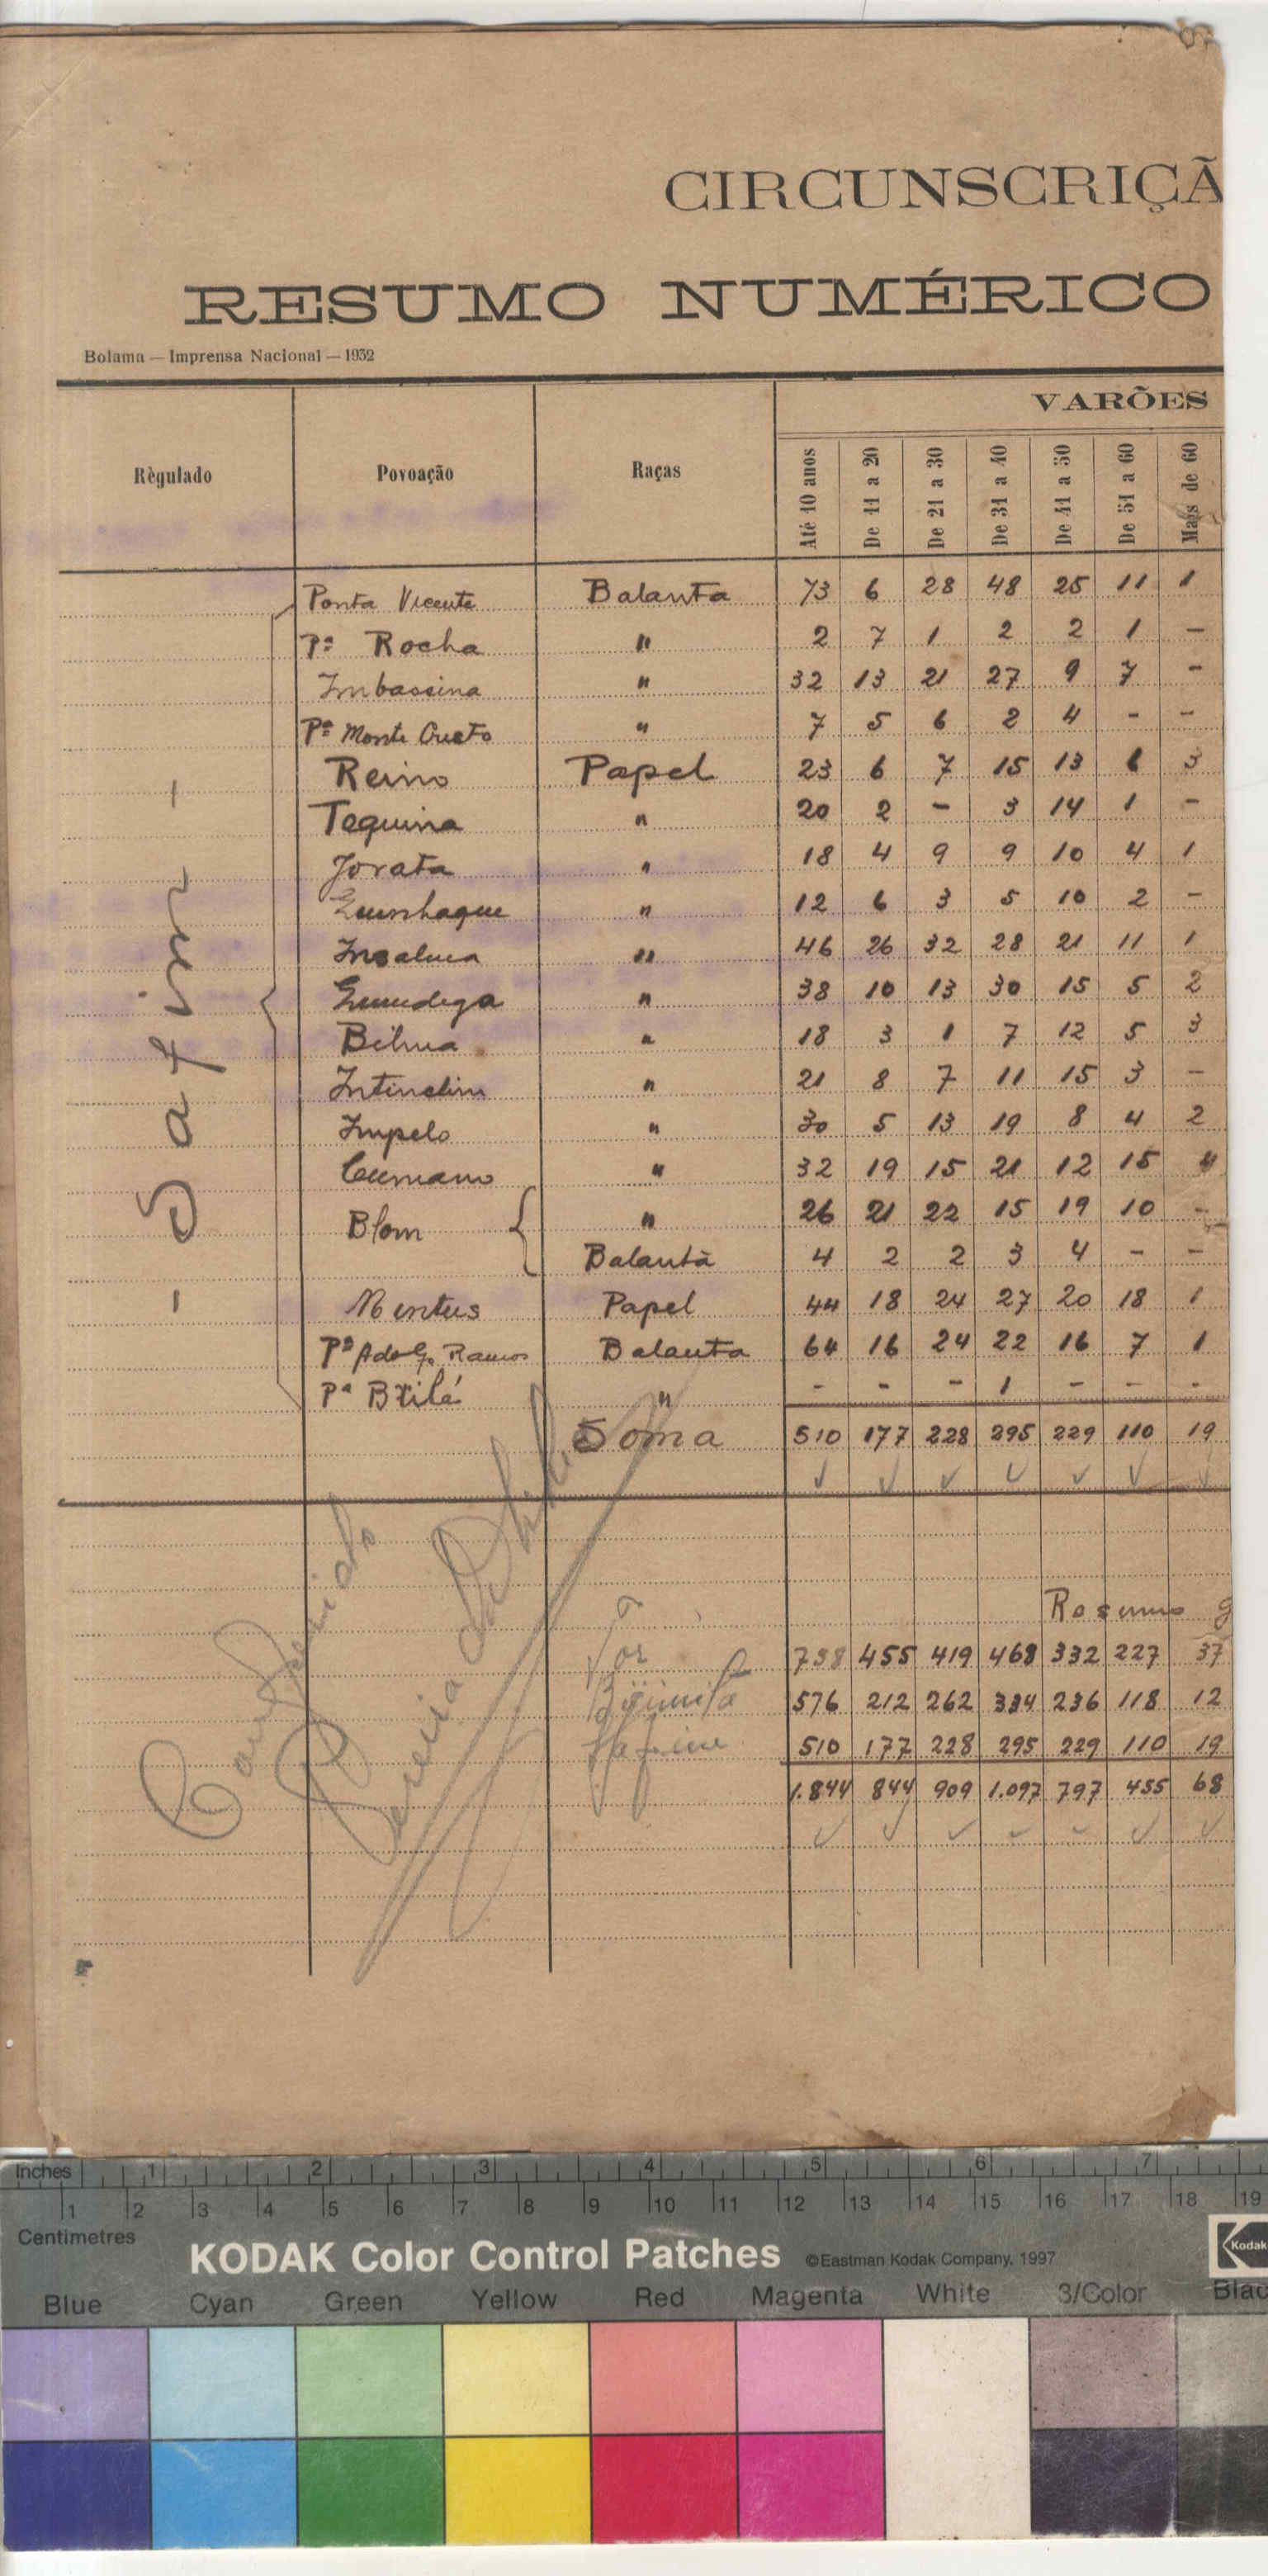 CIRCUNSCRIÇÃ
RESUMO NUMÉRICO
Bolama — Imprensa Nacional — 1932
VARÕES
Règulado Povoação Raças Até 10 anos De 11 a 20 De 21 a 30 De 31 a 40 De 41 a 50 De 51 a 60 Mais de 60
- Safim -
Ponta Vicente Balanta 73 6 28 48 25 11 1
Pª Rocha " 2 7 1 2 2 1 -
Imbassina " 32 13 21 27 9 7 -
Pª Monte Cristo " 7 5 6 2 4 - -
Reino Papel 23 6 7 15 13 6 3
Tequina " 20 2 - 3 14 1 -
Jorata " 18 4 9 9 10 4 1
" 12 6 3 5 10 2 -
Insalma " 46 26 32 28 21 11 1
" 38 10 13 30 15 5 2
Bilma " 18 3 1 7 12 5 3
Intinclim " 21 8 7 11 15 3 -
Impelo " 30 5 13 19 8 4 2
Cumano " 32 19 15 21 12 15 4
Blom { " 26 21 22 15 19 10 -
Balanta 4 2 2 3 4 - -
Papel 44 18 24 27 20 18 1
Pª Adolfo Ramos Balanta 64 16 24 22 16 7 1
Pª Brilé " - - - 1 - - -
Soma 510 177 228 295 229 110 19
Resumo g
Tor 758 455 419 468 332 227 37
Bijimita 576 212 262 334 236 118 12
Safim 510 177 228 295 229 110 19
1.844 844 909 1.097 797 455 68
Inches 1 2 3 4 5 6 7
1 2 3 4 5 6 7 8 9 10 11 12 13 14 15 16 17 18 19
Centimetres
KODAK Color Control Patches ©Eastman Kodak Company, 1997 Kodak
Blue Cyan Green Yellow Red Magenta White 3/Color Blac